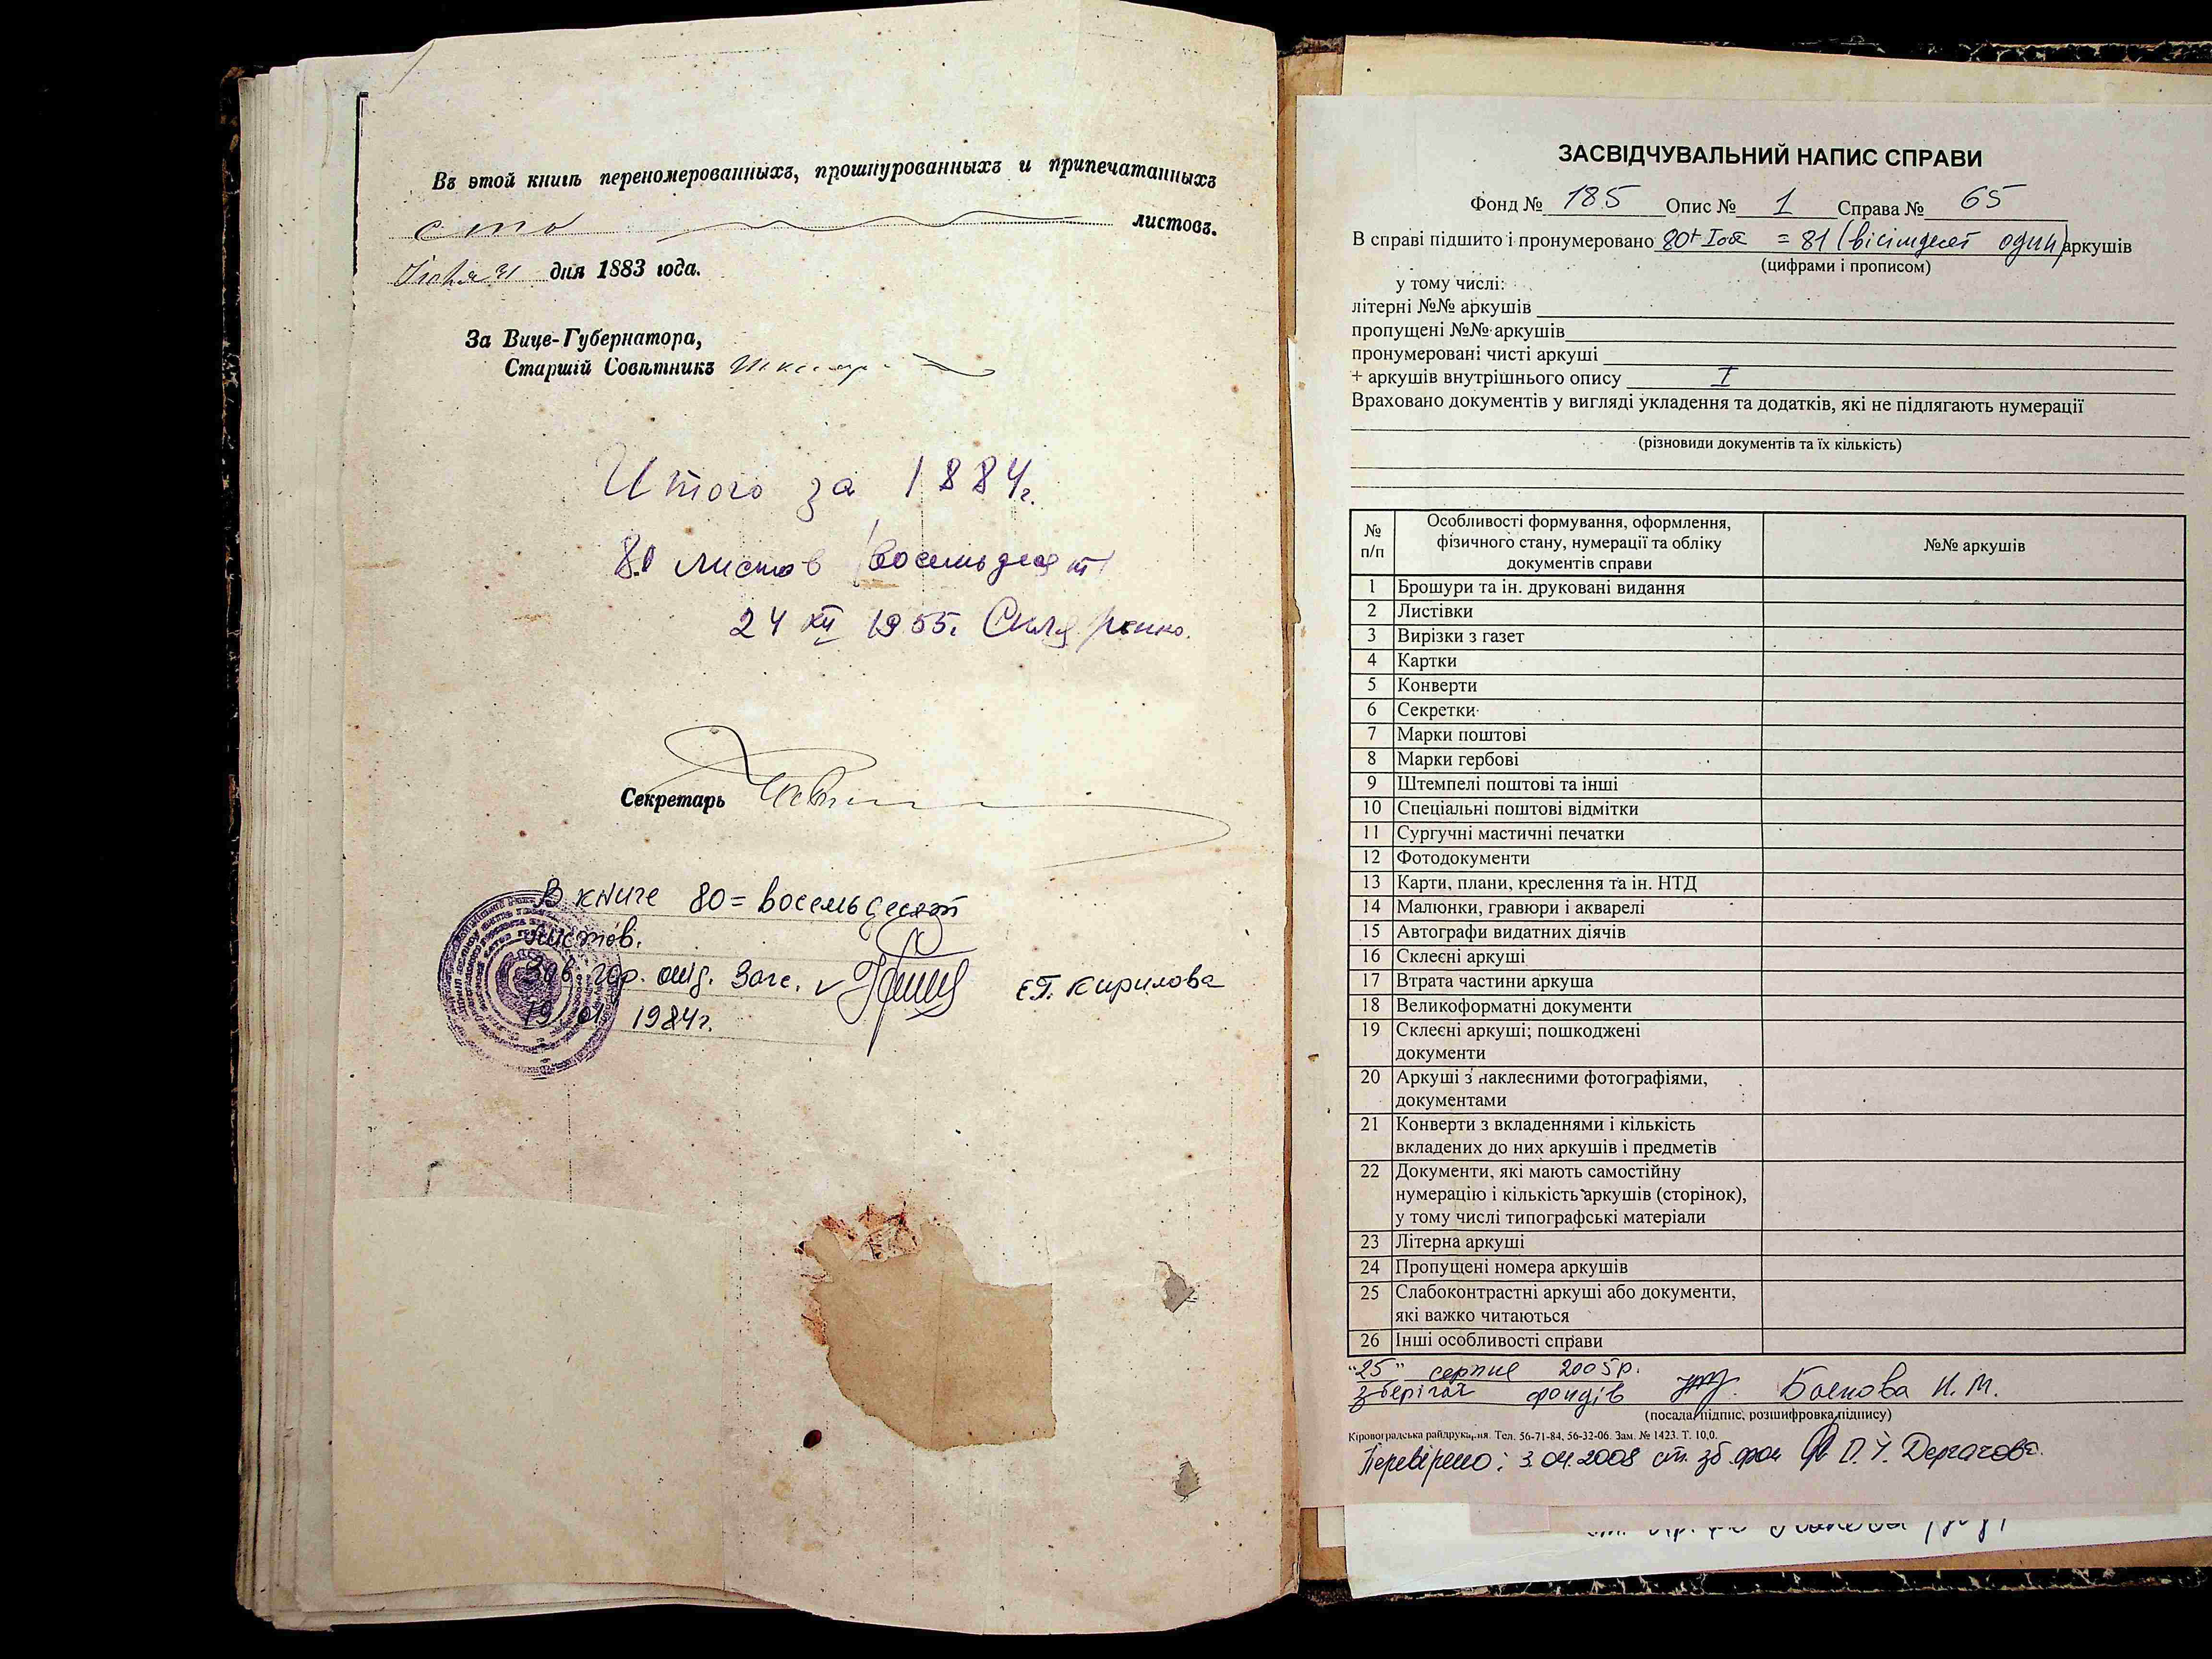 Въ этой книгѣ переномерованныхъ, прошнурованныхъ и припечатанныхъ
сто листовъ.
дня 1883 года.
За Вице-Губернатора,
Старшій Совѣтникъ
Итого за 1884г.
80 листов (восемьдесят)
24 XII 1955г. Скляренко.
Секретарь
В книге 80= восемьдесят
листов.
Зав. гор. отд. Загс. Е.Г. Кирилова
19/01 1984г.
ЗАСВІДЧУВАЛЬНИЙ НАПИС СПРАВИ
Фонд № 185 Опис № 1 Справа № 65
В справі підшито і пронумеровано 80+Iоп = 81 (вісімдесят один) аркушів
(цифрами і прописом)
у тому числі:
літерні №№ аркушів
пропущені №№ аркушів
пронумеровані чисті аркуші
+ аркушів внутрішнього опису I
Враховано документів у вигляді укладення та додатків, які не підлягають нумерації
(різновиди документів та їх кількість)
№ п/п Особливості формування, оформлення, фізичного стану, нумерації та обліку документів справи №№ аркушів
1 Брошури та ін. друковані видання
2 Листівки
3 Вирізки з газет
4 Картки
5 Конверти
6 Секретки
7 Марки поштові
8 Марки гербові
9 Штемпелі поштові та інші
10 Спеціальні поштові відмітки
11 Сургучні мастичні печатки
12 Фотодокументи
13 Карти, плани, креслення та ін. НТД
14 Малюнки, гравюри і акварелі
15 Автографи видатних діячів
16 Склеєні аркуші
17 Втрата частини аркуша
18 Великоформатні документи
19 Склеєні аркуші; пошкоджені
документи
20 Аркуші з наклеєними фотографіями,
документами
21 Конверти з вкладеннями і кількість
вкладених до них аркушів і предметів
22 Документи, які мають самостійну
нумерацію і кількість аркушів (сторінок),
у тому числі типографські матеріали
23 Літерна аркуші
24 Пропущені номера аркушів
25 Слабоконтрастні аркуші або документи,
які важко читаються
26 Інші особливості справи
"25" серпня 2005р.
зберігач фондів Боєнова Н.М.
(посада, підпис, розшифровка підпису)
Кіровоградська райдрукарня. Тел. 56-71-84, 56-32-06. Зам. № 1423. Т. 10,0.
Перевірено: 3.04.2008 ст. зб. фон П.У. Дергачова